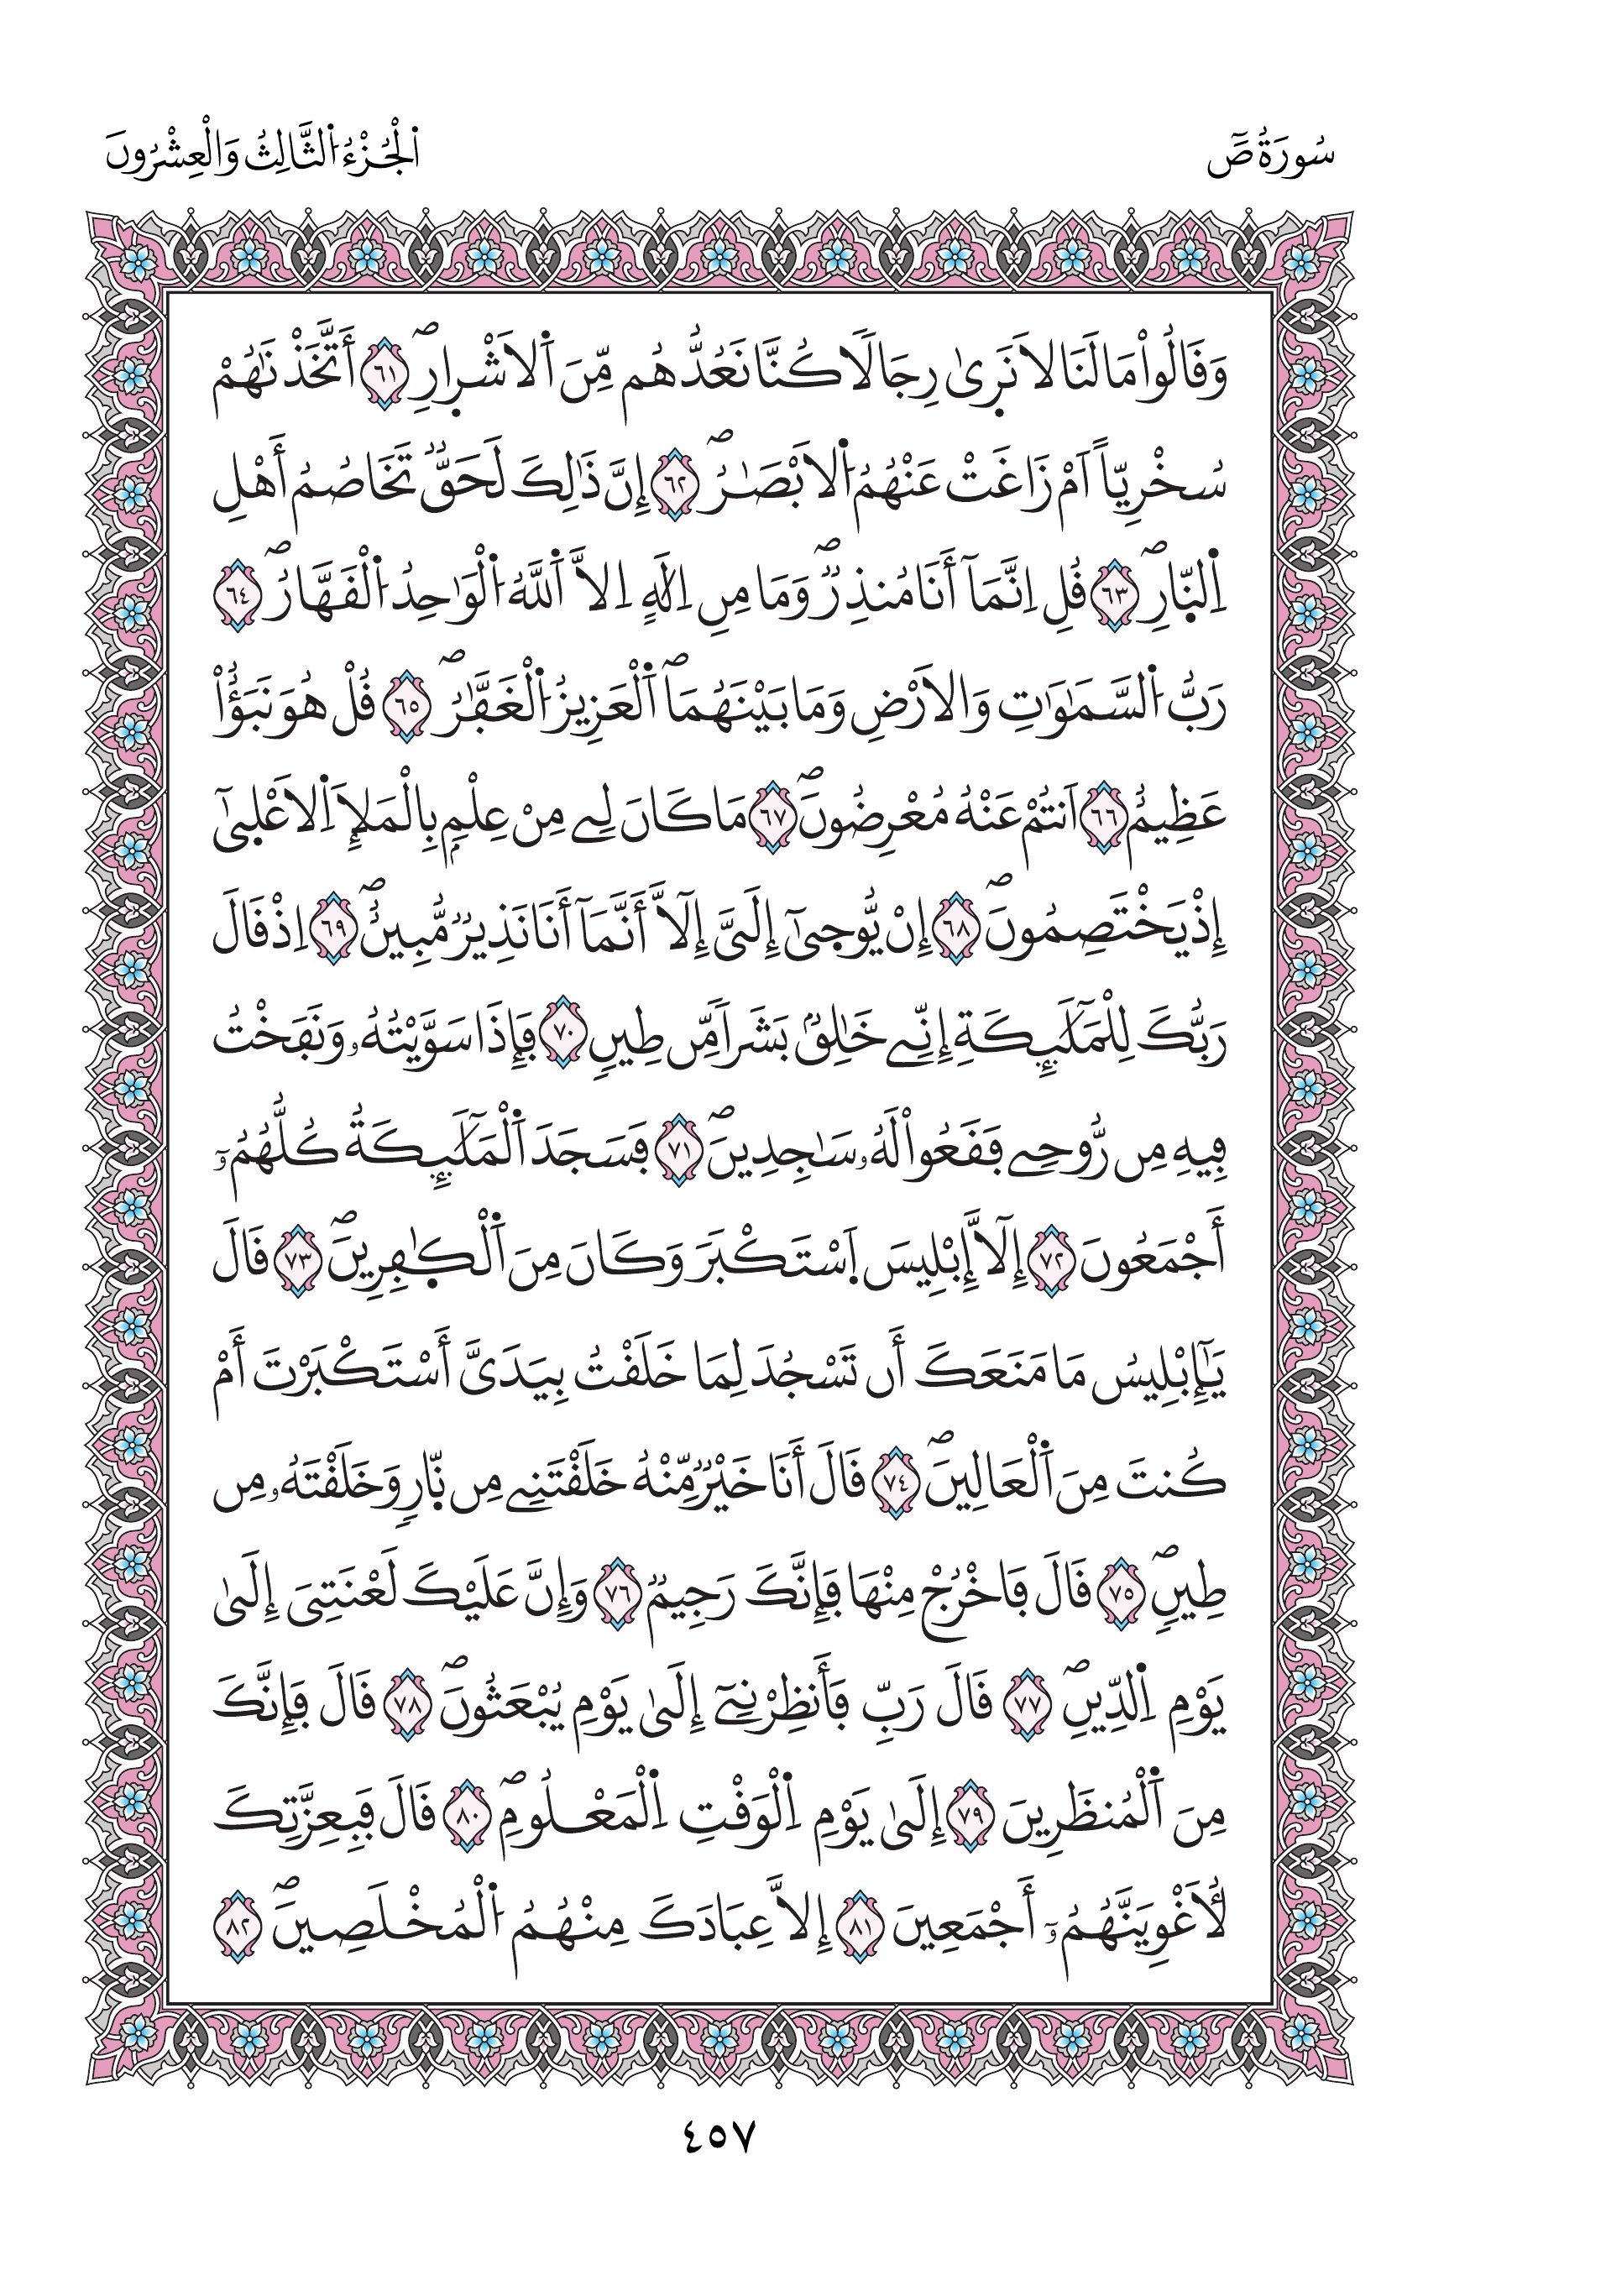 سُورَةُ صَٓ
اَ۬لْجُزْءُ اُ۬لثَّالِثُ وَالْعِشْرُونَ
وَقَالُواْ مَا لَنَا لَا نَر۪ىٰ رِجَالاٗ كُنَّا نَعُدُّهُم مِّنَ اَ۬لَاشْر۪ارِۖ ٦١ أَتَّخَذْنَٰهُمْ
سُخْرِيّاً اَمْ زَاغَتْ عَنْهُمُ اُ۬لَابْصَٰرُۖ ٦٢ إِنَّ ذَٰلِكَ لَحَقّٞ تَخَاصُمُ أَهْلِ
اِ۬لنّ۪ارِۖ ٦٣ قُلِ اِنَّمَآ أَنَا مُنذِرٞۖ وَمَا مِنِ اِلَٰهٍ اِلَّا اَ۬للَّهُ اُ۬لْوَٰحِدُ اُ۬لْقَهَّارُۖ ٦٤
رَبُّ اُ۬لسَّمَٰوَٰتِ وَالَارْضِ وَمَا بَيْنَهُمَاۖ اَ۬لْعَزِيزُ اُ۬لْغَفَّٰرُۖ ٦٥ قُلْ هُوَ نَبَؤٌاْ
عَظِيمٌ ٦٦ اَنتُمْ عَنْهُ مُعْرِضُونَۖ ٦٧ مَا كَانَ لِے مِنْ عِلْمِۢ بِالْمَلَإِ اِ۬لَاعْل۪ىٰٓ
إِذْ يَخْتَصِمُونَۖ ٦٨ إِنْ يُّوح۪ىٰٓ إِلَيَّ إِلَّآ أَنَّمَآ أَنَا نَذِيرٞ مُّبِينٌۖ ٦٩ اِذْ قَالَ
رَبُّكَ لِلْمَلَٰٓئِكَةِ إِنِّے خَٰلِقُۢ بَشَراٗ مِّن طِينٖ ٧٠ فَإِذَا سَوَّيْتُهُۥ وَنَفَخْتُ
فِيهِ مِن رُّوحِے فَقَعُواْ لَهُۥ سَٰجِدِينَۖ ٧١ فَسَجَدَ اَ۬لْمَلَٰٓئِكَةُ كُلُّهُمُۥٓ
أَجْمَعُونَ ٧٢ إِلَّآ إِبْلِيسَ اَ۪سْتَكْبَرَ وَكَانَ مِنَ اَ۬لْكٰ۪فِرِينَۖ ٧٣ قَالَ
يَٰٓإِبْلِيسُ مَا مَنَعَكَ أَن تَسْجُدَ لِمَا خَلَقْتُ بِيَدَيَّ أَسْتَكْبَرْتَ أَمْ
كُنتَ مِنَ اَ۬لْعَالِينَۖ ٧٤ قَالَ أَنَا خَيْرٞ مِّنْهُ خَلَقْتَنِے مِن نّ۪ارٖ وَخَلَقْتَهُۥ مِن
طِينٖۖ ٧٥ قَالَ فَاخْرُجْ مِنْهَا فَإِنَّكَ رَجِيمٞ ٧٦ وَإِنَّ عَلَيْكَ لَعْنَتِيَ إِلَىٰ
يَوْمِ اِ۬لدِّينِۖ ٧٧ قَالَ رَبِّ فَأَنظِرْنِےٓ إِلَىٰ يَوْمِ يُبْعَثُونَۖ ٧٨ قَالَ فَإِنَّكَ
مِنَ اَ۬لْمُنظَرِينَ ٧٩ إِلَىٰ يَوْمِ اِ۬لْوَقْتِ اِ۬لْمَعْلُومِۖ ٨٠ قَالَ فَبِعِزَّتِكَ
لَأُغْوِيَنَّهُمُۥٓ أَجْمَعِينَ ٨١ إِلَّا عِبَادَكَ مِنْهُمُ اُ۬لْمُخْلَصِينَۖ ٨٢
٤٥٧